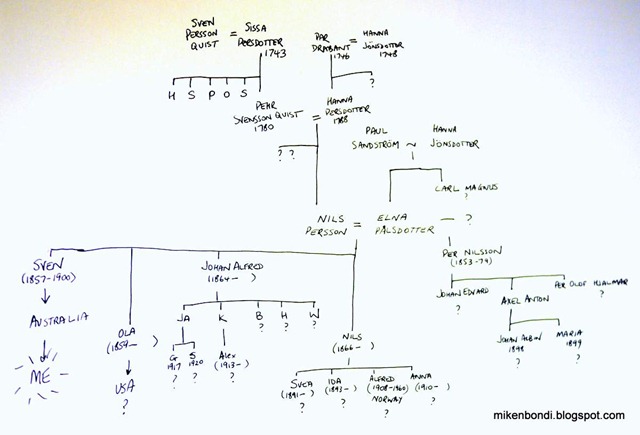 SVEN
PERSSON
QUIST
=
SISSA
PERSDOTTER
1743
PAR
DRABANT
1746
=
HANNA
JÖNSDOTTER
1748
H S P O S
?
PEHR
SVENSSON QUIST
1780
=
HANNA
PERSDOTTER
1788
? ?
PAUL
SANDSTRÖM
~
HANNA
JÖNSDOTTER
CARL MAGNUS
?
NILS
PERSSON
=
ELNA
PÅLSDOTTER
— ?
SVEN
(1857-1900)
AUSTRALIA
ME
OLA
(1859- )
USA
?
JOHAN ALFRED
(1864- )
JA K B H W
? ? ?
G S
1917 1920
? ?
Alex
(1913-)
?
NILS
(1866- )
SVEA
(1891-)
?
IDA
(1893-)
?
ALFRED
(1908-1960)
NORWAY
?
ANNA
(1910-)
?
PER NILSSON
(1853-79)
JOHAN EDVARD
?
AXEL ANTON
PER OLOF HJALMAR
?
JOHAN ALBIN
1898
?
MARIA
1899
?
mikenbondi.blogspot.com